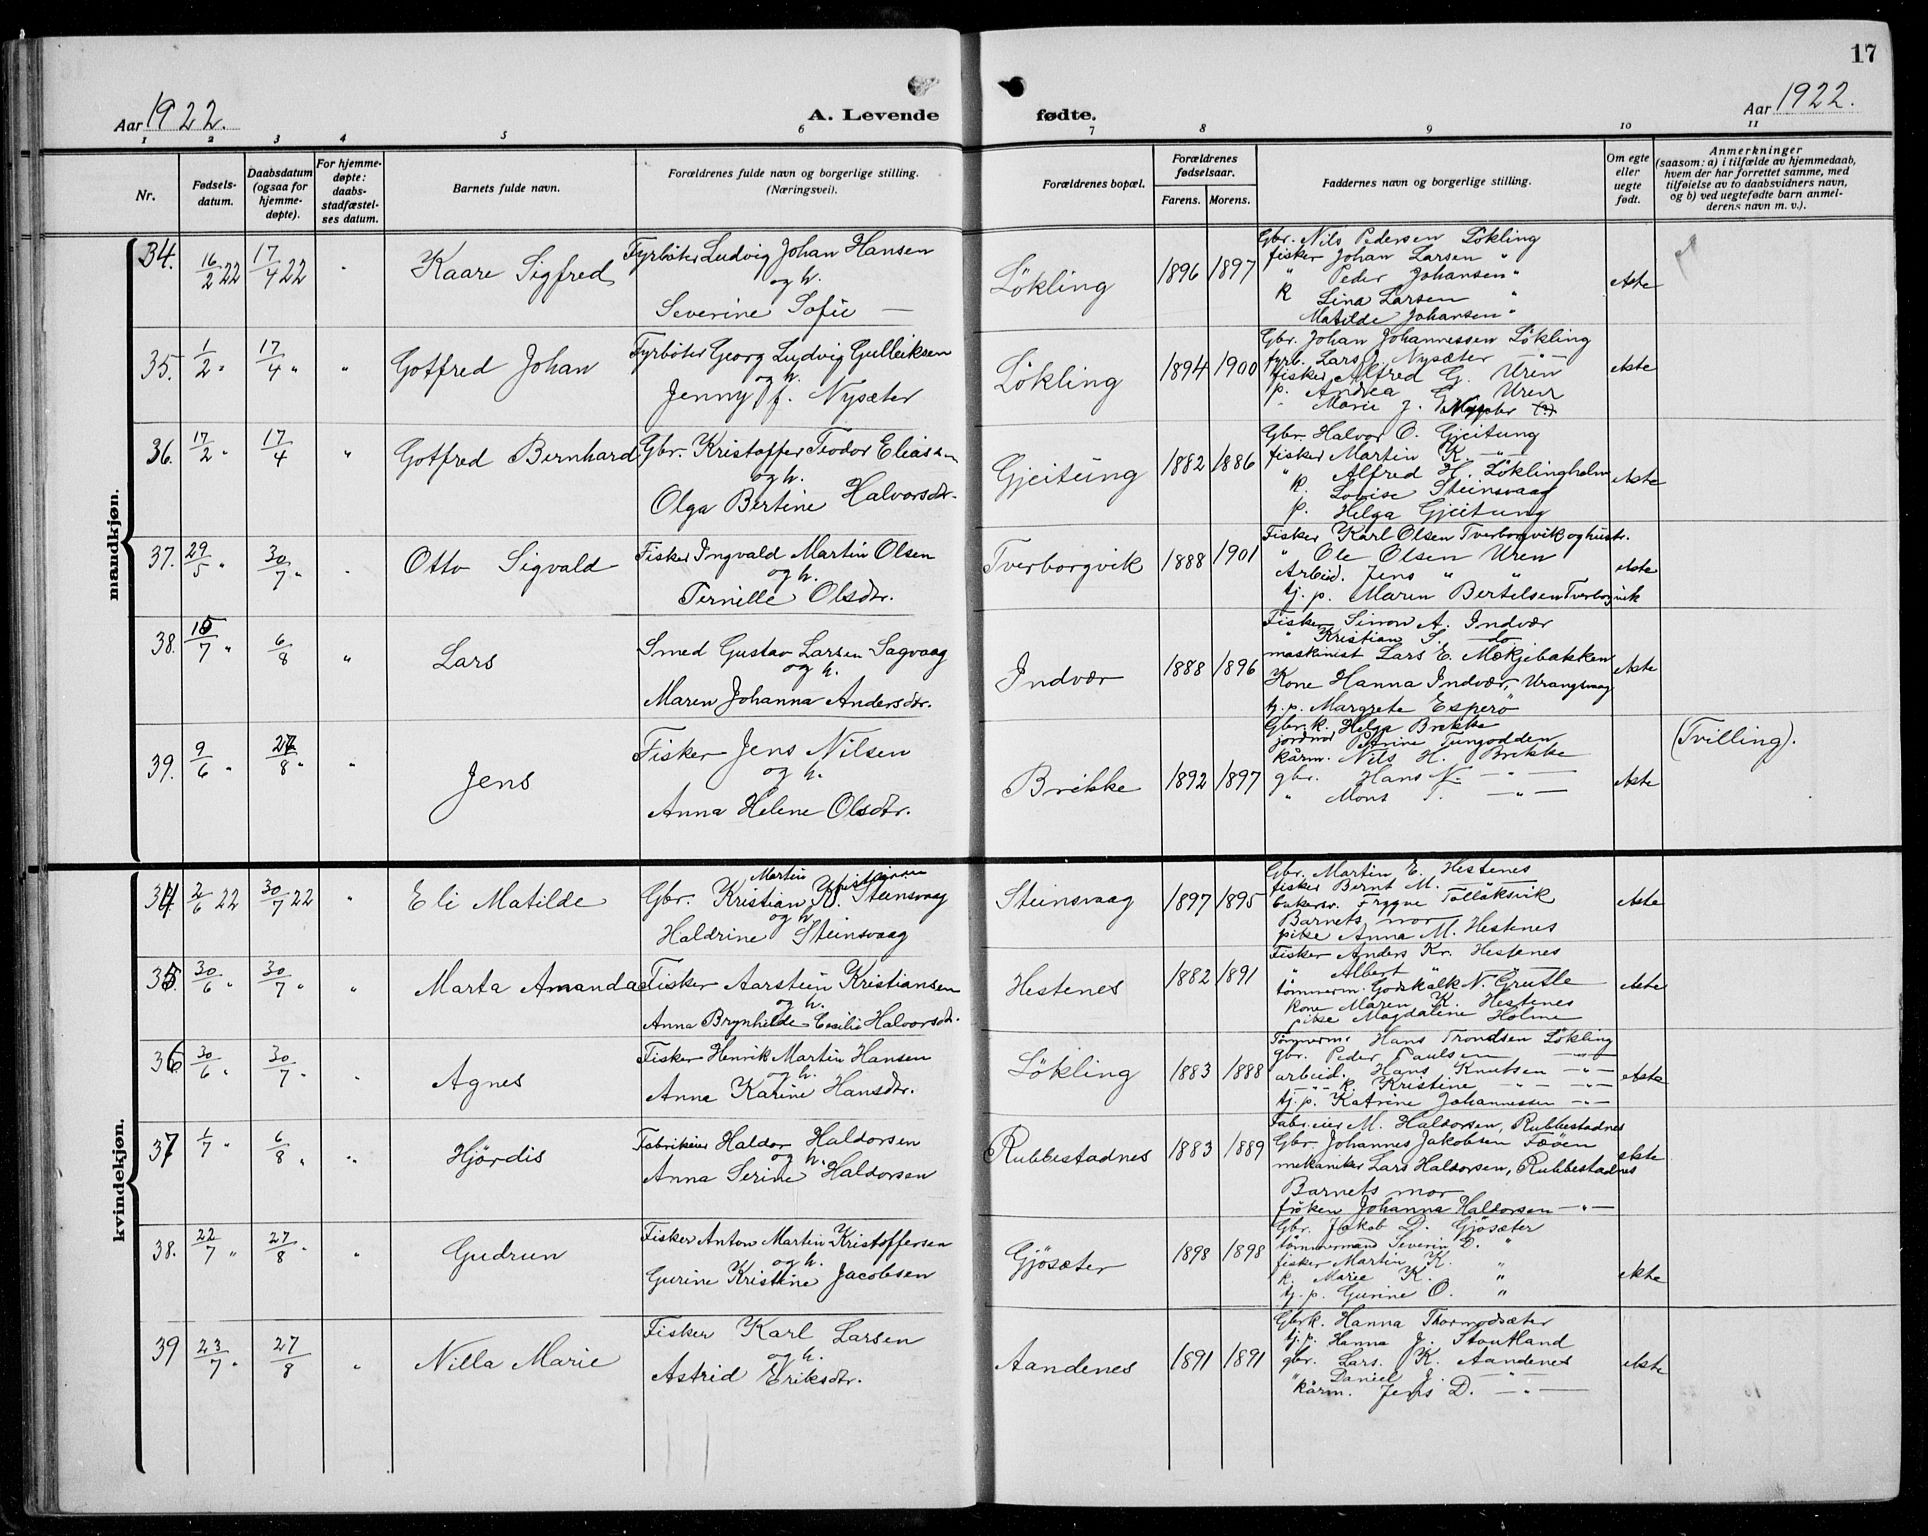 17
Aar 1922.
A. Levende
fødte.
Aar 1922.
1 2 3 4 5 6 7 8 9 10 11
Nr.
Fødsels-
datum.
Daabsdatum
(ogsaa for
hjemme-
døpte).
For hjemme-
døpte:
daabs-
stadfæstel-
ses datum.
Barnets fulde navn.
Forældrenes fulde navn og borgerlige stilling.
(Næringsvei).
Forældrenes bopæl.
Forældrenes
fødselsaar.
Farens. Morens.
Faddernes navn og borgerlige stilling.
Om egte
eller
uegte
født.
Anmerkninger
(saasom: a) i tilfælde av hjemmedaab,
hvem der har forrettet samme, med
tilføielse av to daabsvidners navn,
og b) ved uegtefødte barn anmel-
derens navn m. v.).
mandkjøn.
34. 16/2 22 17/4 22 " Kaare Sigfred
Fyrbøter Ludvig Johan Hansen
og h.
Severine Sofie —
Løkling 1896 1897
Gbr. Nils Pedersen Løkling
fisker Johan Larsen "
" Peder Johansen "
k Lina Larsen "
Matilde Johansen "
ekte
35. 1/2 " 17/4 " " Gotfred Johan
Fyrbøter Georg Ludvig Gulleiksen
og h.
Jenny J. Nysæter
Løkling 1894 1900
Gbr. Johan Johannessen Løkling
fyrb. Lars J. Nysæter —"—
fisker Alfred G. Uren
p. Andrea G. Uren
" Marie J.
ekte
36. 17/2 " 17/4 " Gotfred Bernhard
Gbr. Kristoffer Teodor Eliassen
og h.
Olga Bertine Halvorsdtr.
Gjeitung 1882 1886
Gbr. Halvor O. Gjeitung
fisker Martin K. —"—
" Alfred H. Løklingholm
k. Lovise Steinsvaag
p. Helga Gjeitung
ekte
37. 29/5 " 30/7 " " Otto Sigvald
Fisker Ingvald Martin Olsen
og h.
Pernille Olsdtr.
Tverborgvik 1888 1901
Fisker Karl Olsen Tverborgvik og hustr.
" Ole Olsen Uren
Arbeid. Jens " "
tj. p. Maren Bertelsen Tverborgvik
ekte
38. 15/7 " 6/8 " Lars
Smed Gustav Larsen Sagvaag
og h.
Maren Johanna Andersdtr.
Indvær 1888 1896
Fisker Simon A. Indvær
" Kristian S. do
maskinist Lars E. Mækjebakken
Kone Hanna Indvær, Urangsvaag
tj. p. Margrete Esperø
ekte
39. 9/6 " 27/8 " " Jens
Fisker Jens Nilsen
og h.
Anna Helene Olsdtr.
Brekke 1892 1897
Gbr.k. Helga Brekke
jordmor Petrine Tungodden
kårm. Nils H. Brekke
gbr. Hans N. —"—
" Mons T. —"—
ekte
(Tvilling).
kvindekjøn.
34 2/6 22 30/7 22 " Eli Matilde
Martin Kristiansen
Gbr. Kristian K. Steinsvaag
og h.
Haldrine Steinsvaag
Steinsvaag 1897 1895
Gbr. Martin E. Hestenes
fisker Bernt M. —
bakersv. Trygve Folláksvik
Barnets mor
pike Anna M. Hestenes
ekte
35. 30/6 " 30/7 " " Marta Amanda
Fisker Aarstein Kristiansen
og h.
Anna Brynhilde Cesilie Halvorsdtr.
Hestenes 1882 1891
Fisker Anders Kr. Hestenes
" Albert "
tømmerm. Godskalk N. Grutle
kone Maren K. Hestenes
pike Magdaline Holme
ekte
36. 30/6 " 30/7 " " Agnes
Fisker Henrik Martin Hansen
og h.
Anna Karine Hansdtr.
Løkling 1883 1888
Tømmerm. Hans Trondsen Løkling
gbr. Peder Paulsen —"—
arbeid. Hans Knutsen —"—
—"— k. Kristine —"— —"—
tj. p. Katrine Johannessen —"—
ekte
37 1/7 " 6/8 " " Hjørdis
Fabrikeier Haldor Haldorsen
og h.
Anna Serine Haldorsen
Rubbestadnes 1883 1889
Fabr.eier M. Haldorsen, Rubbestadnes
Gbr. Johannes Jakobsen Føøen
mekaniker Lars Haldorsen, Rubbestadnes
Barnets mor
frøken Johanna Haldorsen —"—
ekte
38. 22/7 " 27/8 " " Gudrun
Fisker Anton Martin Kristoffersen
og h.
Gurine Kristine Jacobsen
Gjøsæter 1898 1898
Gbr. Jakob D. Gjøsæter
tømmermand Severin D. "
fisker Martin K. "
k. Marie K. "
tj. p. Gurine O. "
ekte
39 23/7 " 27/8 " Nilla Marie
Fisker Karl Larsen
og h.
Astrid Eriksdtr.
Aandenes 1891 1891
Gbr.k. Hanna Thormodsæter
tj. p. Hanna J. Stautland
gbr. Lars K. Aandenes
" Daniel J. —"—
kårm. Jens D. —"—
ekte